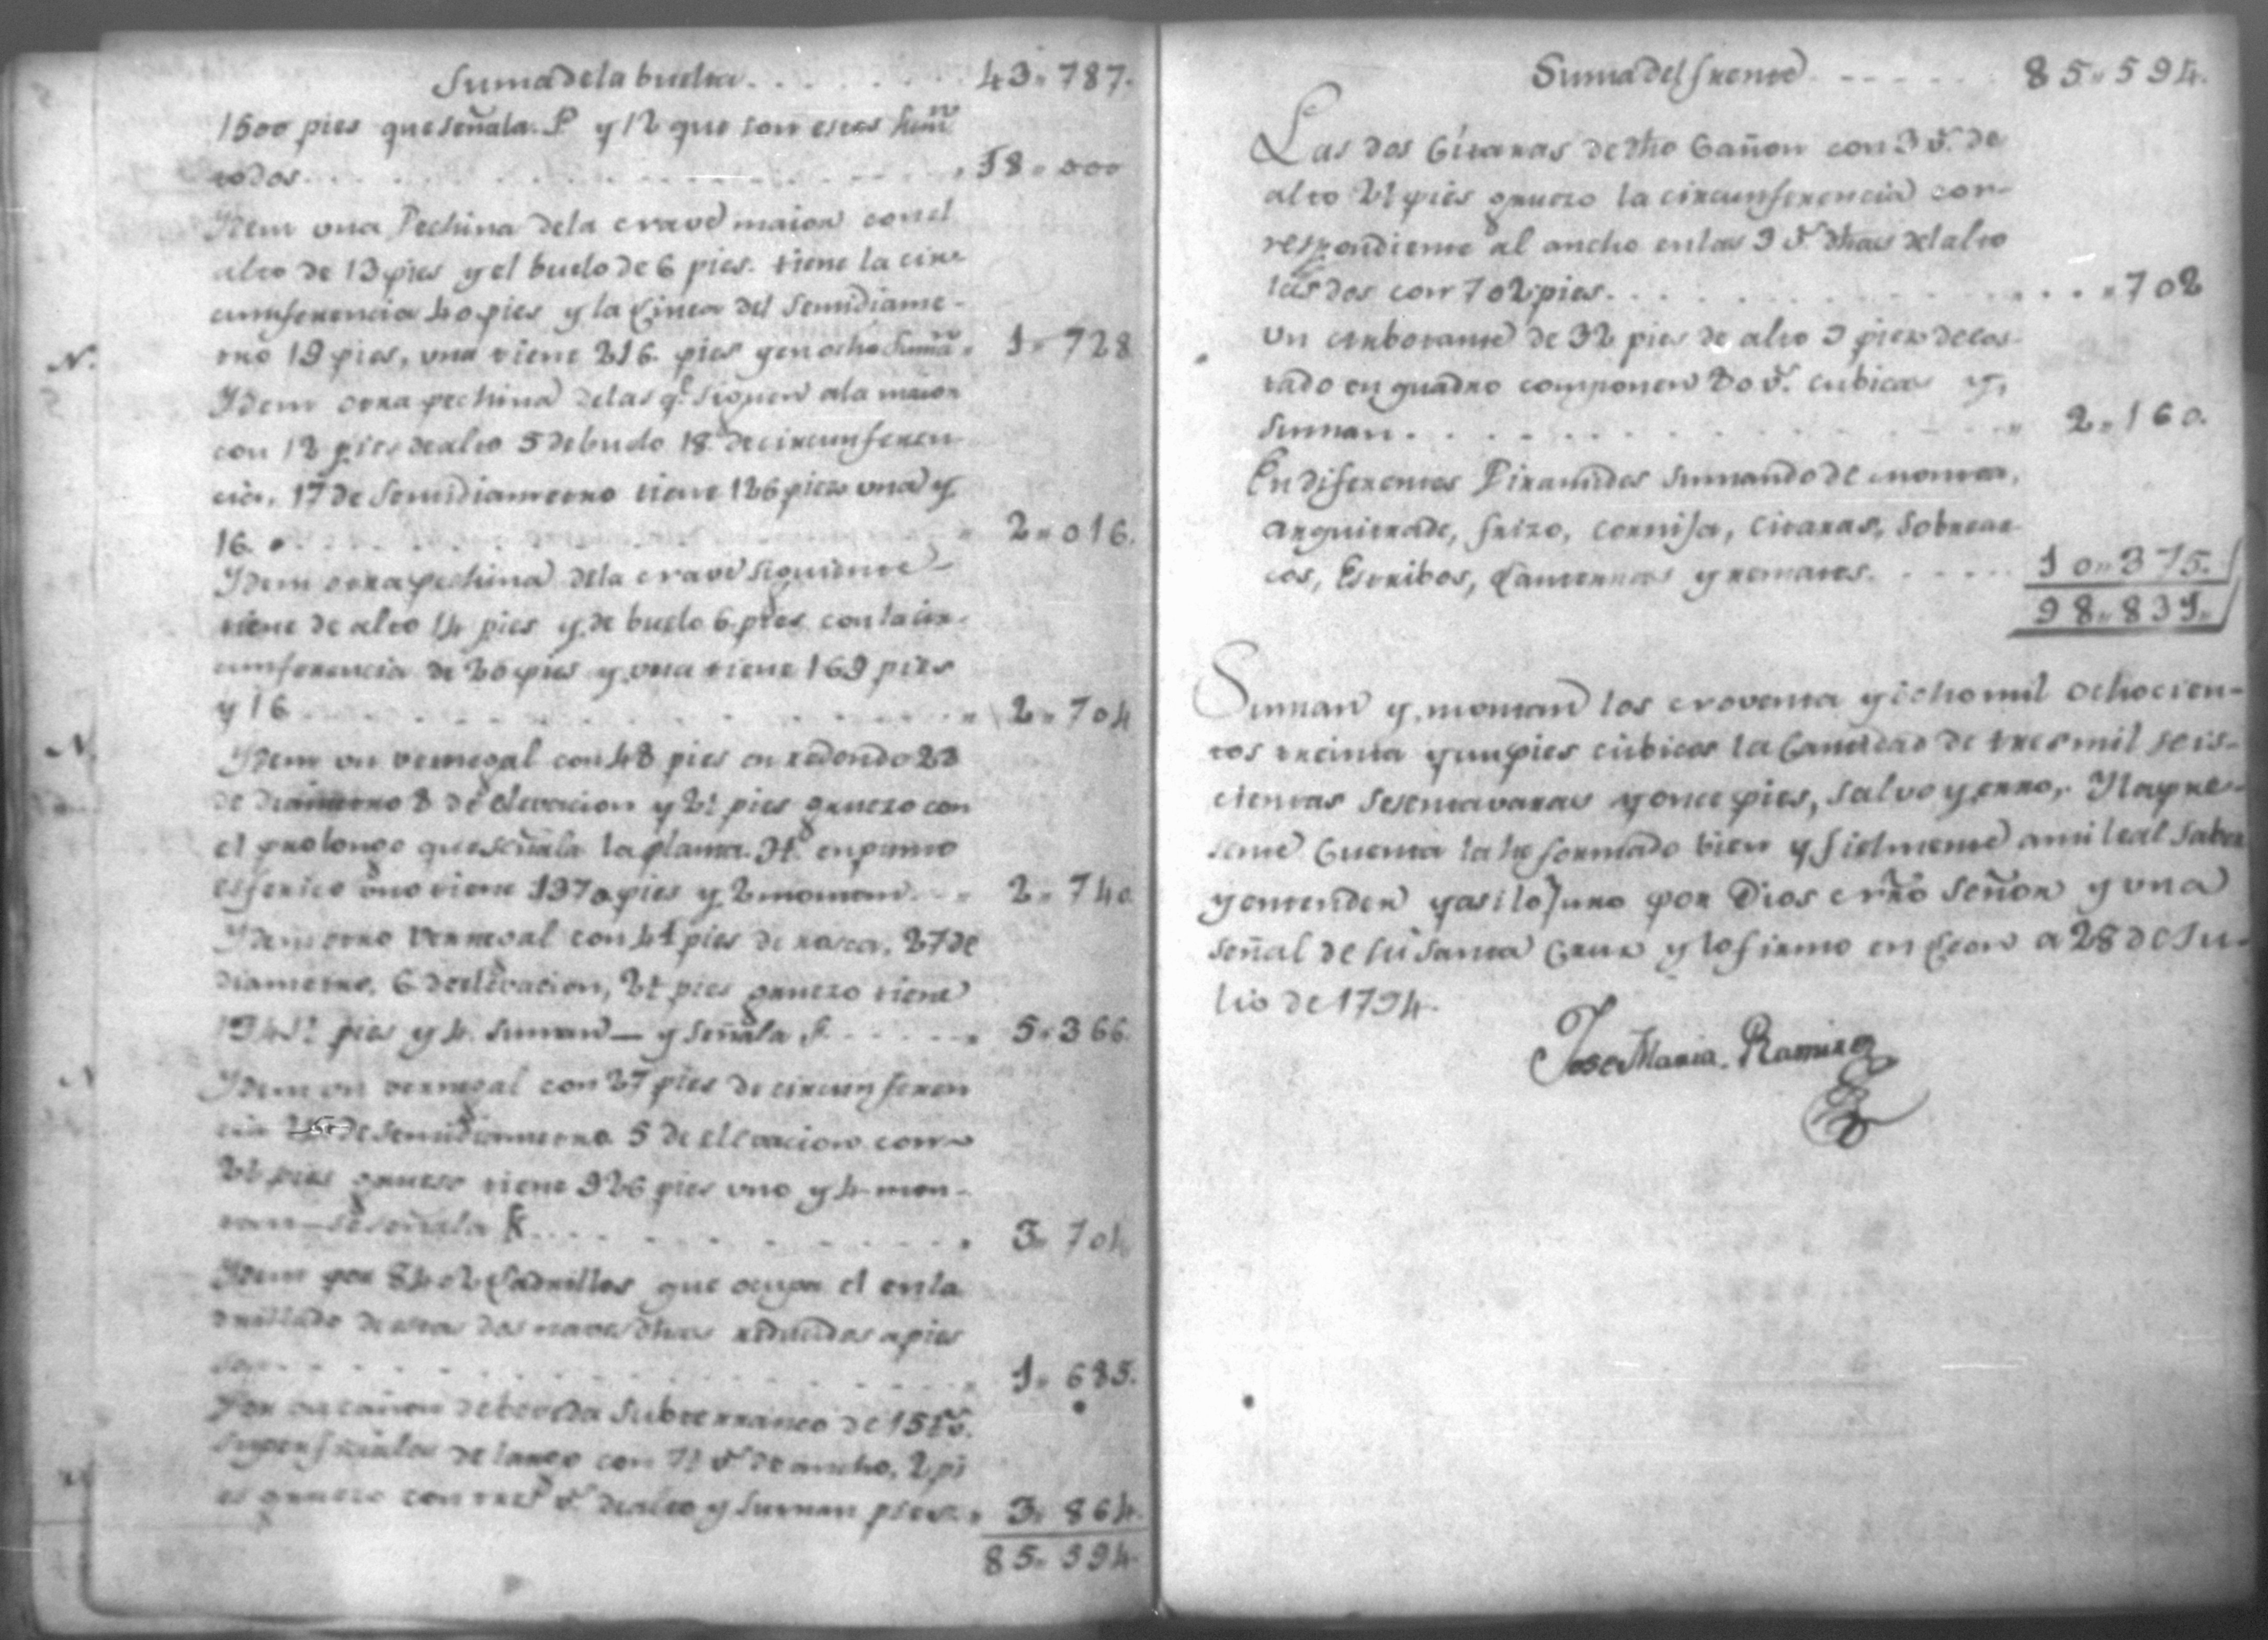 Suma de la buelta . . . . . . . 43 " 787.
1500 pies que señala P y 12 que son estos suman
todos . . . . . . . . " 18 " 000
Ydem una Pechina dela crave maior con el
alto de 13 pies y el buelo de 6 pies. tiene la cir-
cunferencia 40 pies y la Linea del Semidiame-
tro 19 pies, una tiene 216 pies y en ocho suman " 1 " 728
Ydem otra pechina delas q.e siguen ala maior
con 12 pies de alto 5 de buelo 18 de circunferen-
cia, 17 de Semidiametro tiene 126 pies una y
16 . . . . . . . . " 2 " 016.
Ydem otra pechina dela crave siguiente
tiene de alto 14 pies y de buelo 6 pies con la cir-
cunferencia de 20 pies y una tiene 169 pies
y 16 . . . . . . . . " 2 " 704
Ydem un vernegal con 48 pies en redondo 28
de diametro 8 de elevacion y 2½ pies grueso con
el prolongo que señala la planta H. en punto
esferico uno tiene 1370 pies y 2 montan . . " 2 " 740
Ydem otro vernegal con 41 pies de rosca, 27 de
diametro, 6 de elevacion, 2½ pies grueso tiene
1341½ pies y 4 suman — y señala . . . . . " 5 " 366.
Ydem un vernegal con 27 pies de circunferen
cia de semidiametro 5 de elevacion con
2½ pies grueso tiene 926 pies uno y 4 mon-
tan — se señala K . . . . . . . " 3 " 704
Ydem por 8402 Ladrillos que ocupa el enla
drillado de estas dos naves dhas reducidos a pies
son . . . . . . . . " 1 " 685.
Por un cañon de boveda Subterraneo de 15
superficiales de largo con 7½ v.s de ancho, 2 pi
es grueso con tres v.s de alto y suman pies . " 3 " 864.
85 " 594.
Suma del frente . . . . . . 85 " 594.
Las dos Citaras de dho Cañon con 3 v.s de
alto 2½ pies grueso la circunferencia cor-
respondiente al ancho en las 3 v.s dhas del alto
las dos con 702 pies . . . . . . . . " 702
Un arbotante de 32 pies de alto 9 pies de cos-
tado en quadro componen 80 v.s cubicas y,
suman . . . . . . . . " 2 " 160.
En diferentes Piramides sumando de montea,
arquitrave, frizo, cornisa, citaras, sobrear-
cos, Estribos, Lanternas y remates . . . . . 10 " 375.
98 " 831.
Suman y, montan los eroventa y ochomil ochocien-
tos treinta y un pies cubicos la Cantidad de tresmil seis-
cientas sesenta varas y once pies, salvo yerro,. Y la pre-
sente Cuenta la he formado bien y fielmente a mi leal saber
y entender y asi lo juro por Dios nrro Señor y una
señal de su santa Cruz y lo firmo en Leon a 28 de Ju-
lio de 1794.
Jose Maria Ramirez